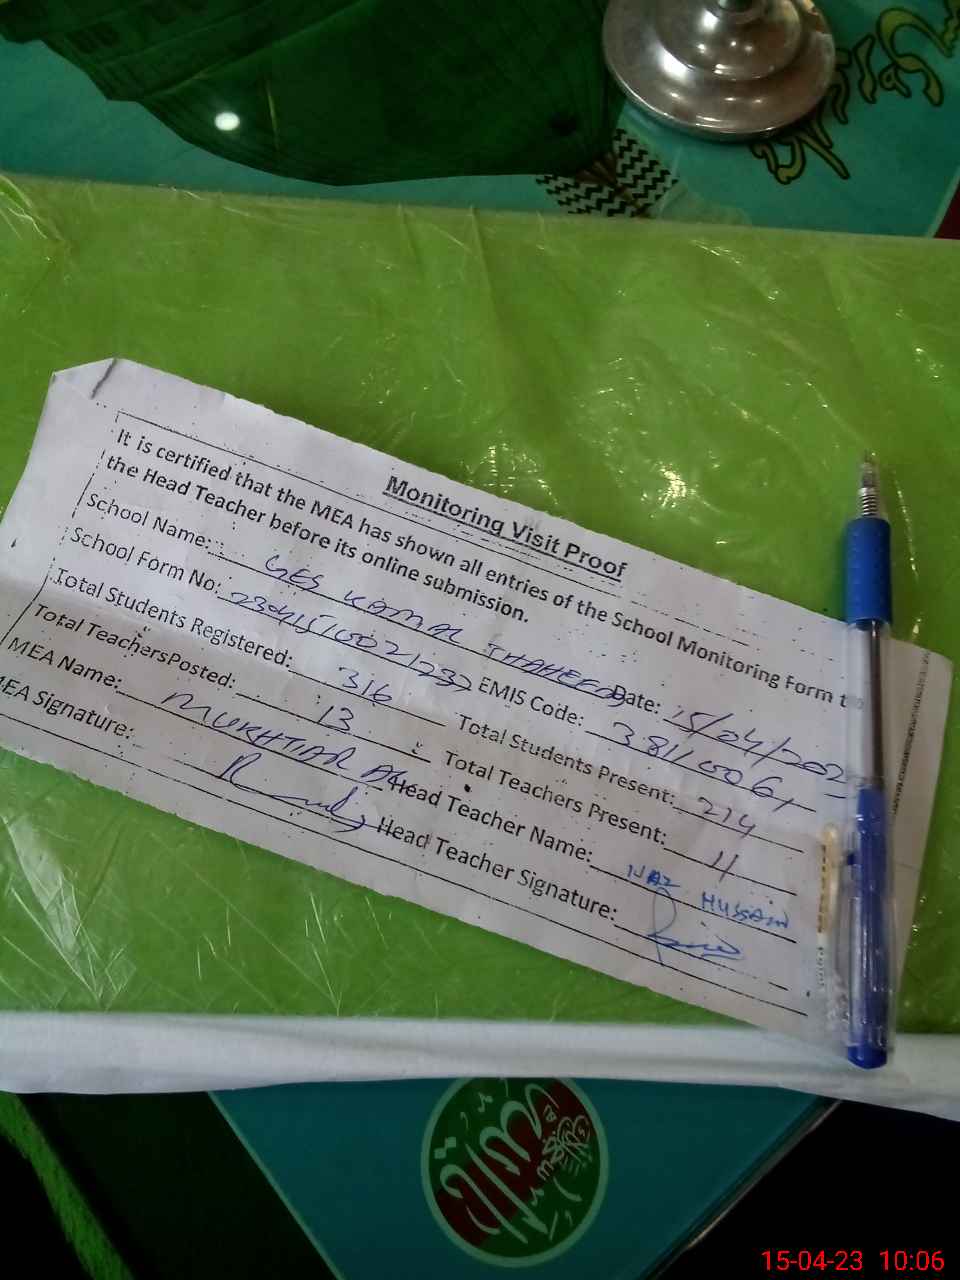 Monitoring Visit Proof
It is certified that the MEA has shown all entries of the School Monitoring Form to
the Head Teacher before its online submission.
School Name: GES KAMAL THAHEEM Date: 15/04/202
School Form No: EMIS Code: 38110061
Total Students Registered: 316 Total Students Present: 214
Total TeachersPosted: 13 Total Teachers Present: 11
MEA Name: MUKHTIAR Head Teacher Name: NAZ HUSSAIN
MEA Signature: Head Teacher Signature:
15-04-23 10:06